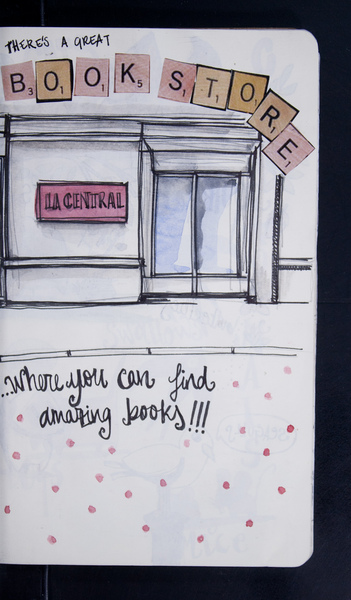 THERE'S A GREAT
B3 O1 O1 K5 S1 T1 O1 R1 E1
LA CENTRAL
...where you can find
amazing books!!!